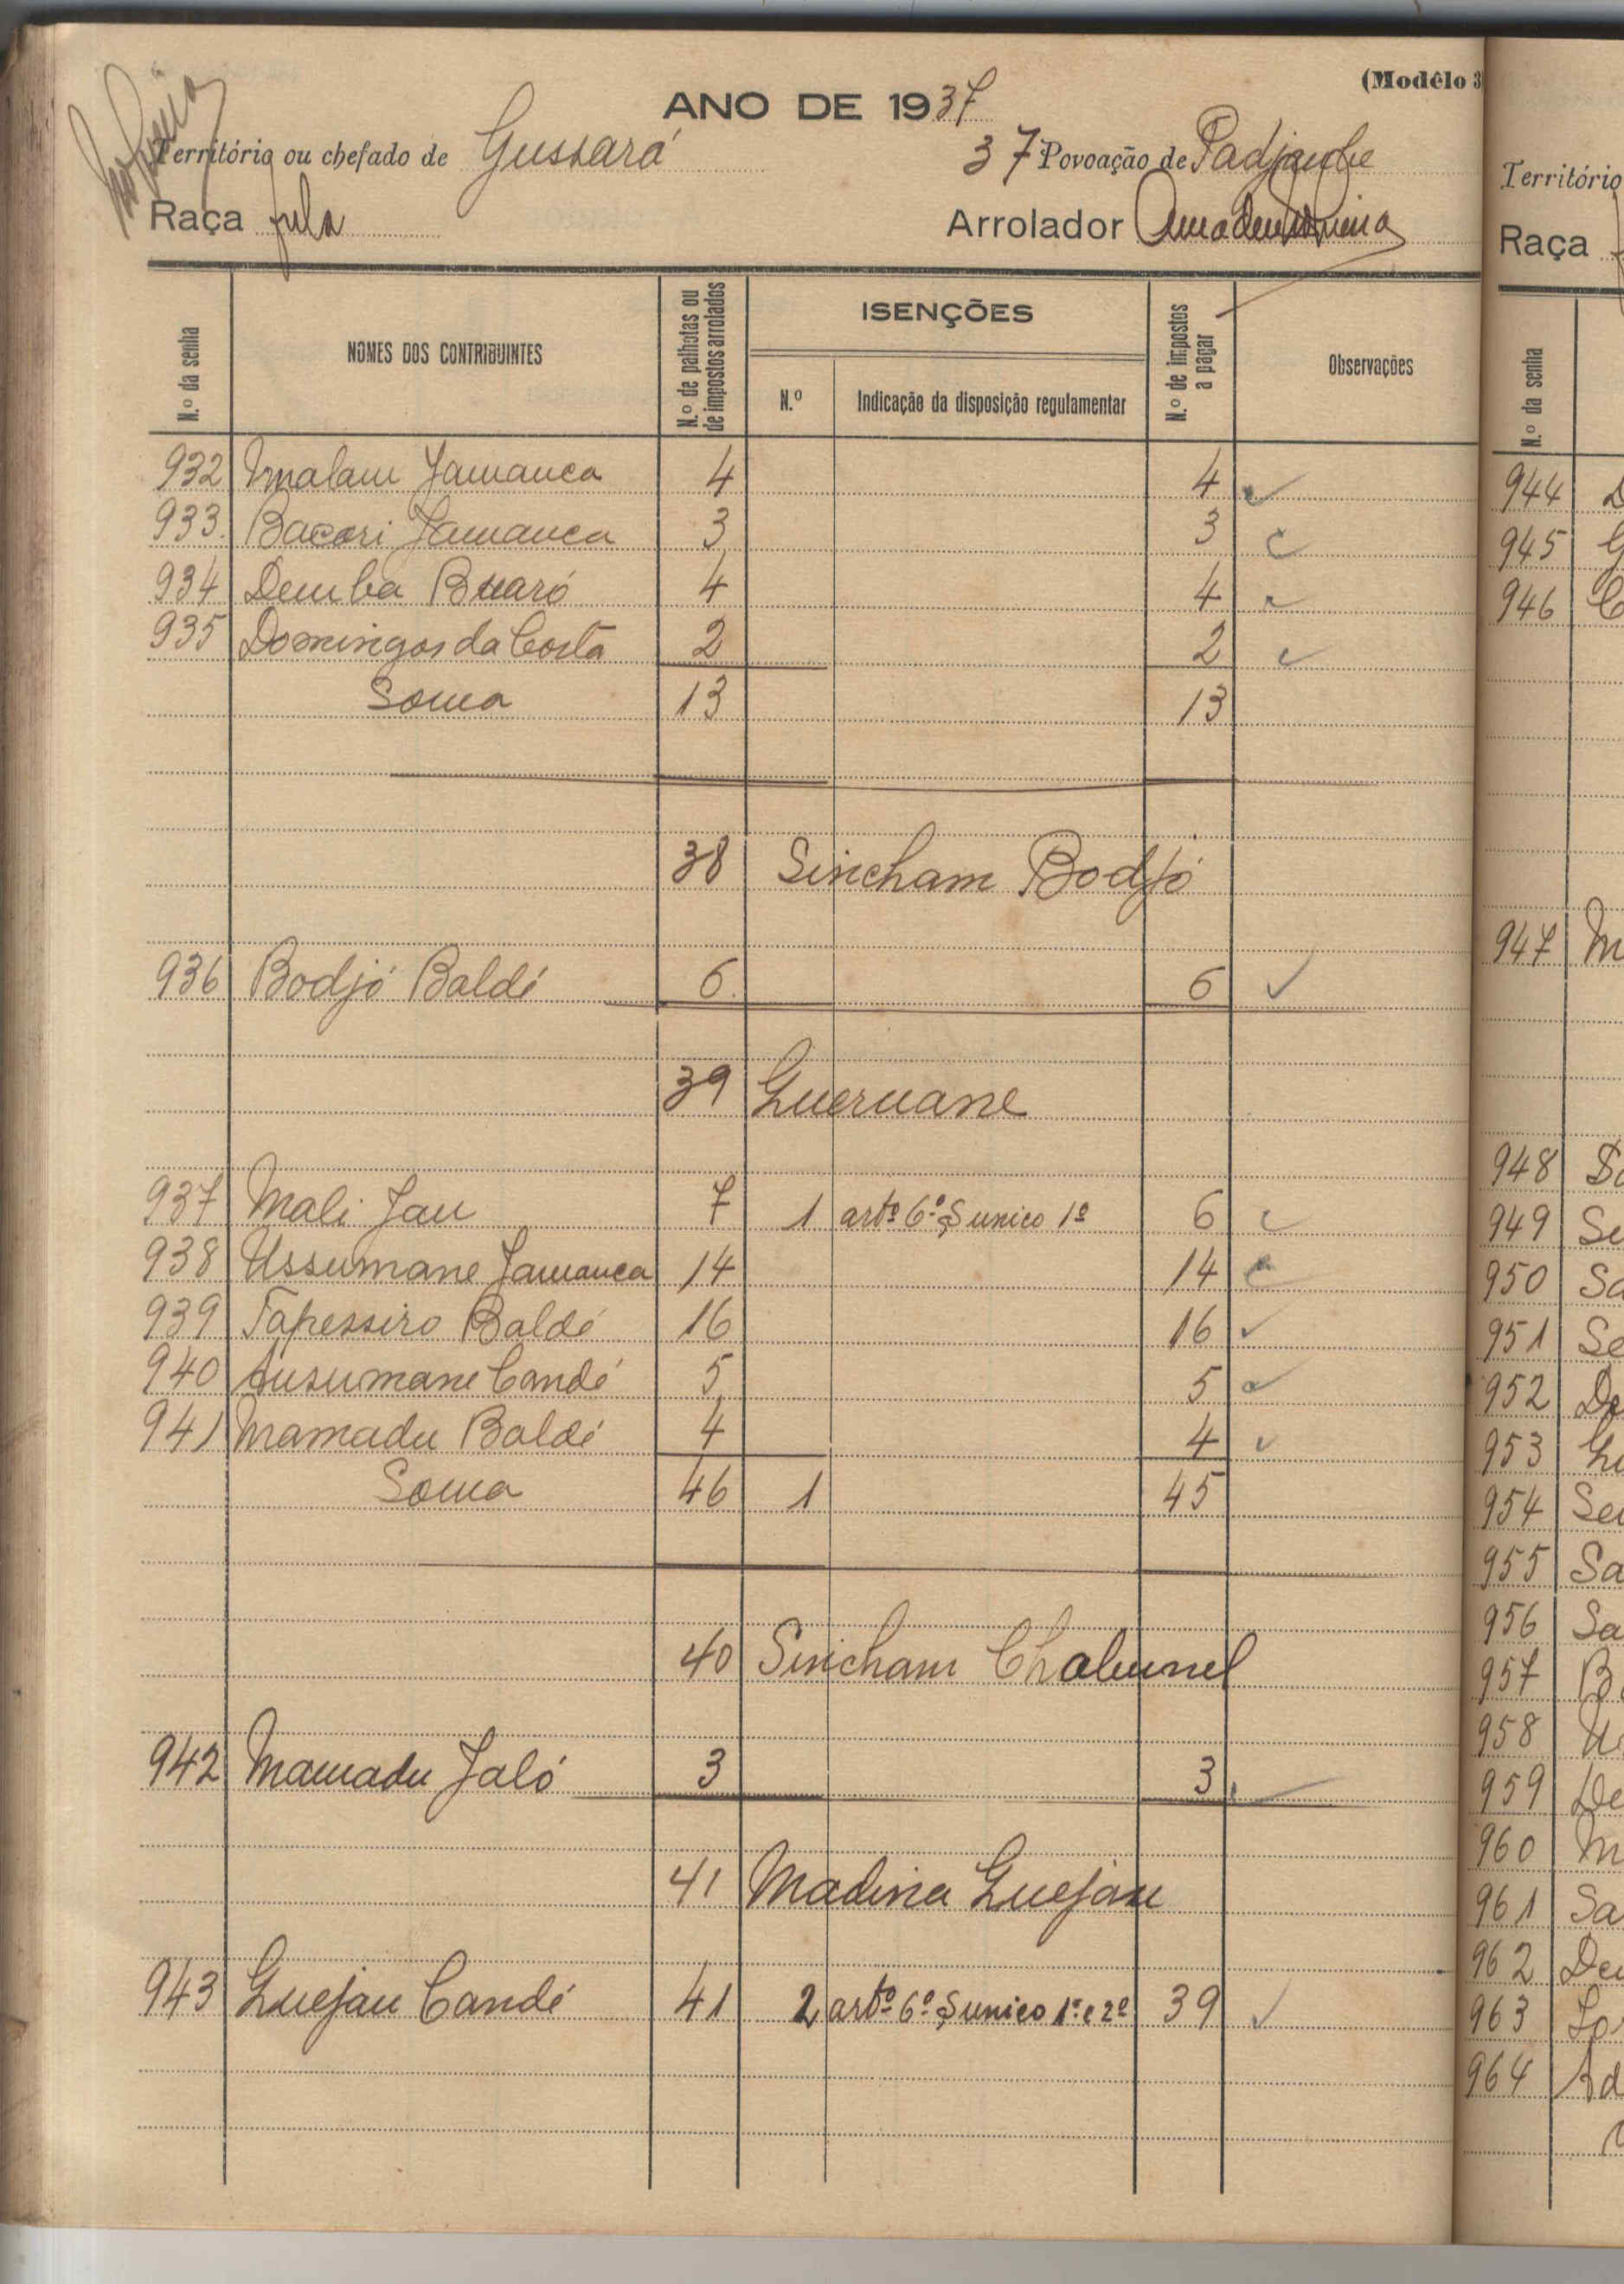 (Modêlo 3
ANO DE 1937
Território ou chefado de Gussará 37 Povoação de Padjambe
Raça fula Arrolador
N.º da senha NOMES DOS CONTRIBUINTES N.º de palhotas ou de impostos arrolados ISENÇÕES N.º de impostos a pagar Observações
N.º Indicação da disposição regulamentar
932 Imalam Jamanca 4 4
933 Bacari Jamanca 3 3
934 Demba Buaró 4 4
935 Domingos da Costa 2 2
Soma 13 13
38 Sincham Bodjó
936 Bodjó Baldé 6 6
39 Gueruane
937 Mali Jau 7 1 artº 6º § unico 1º 6
938 Ussumane Jamanca 14 14
939 Tapessiro Baldé 16 16
940 Ansumane Candé 5 5
941 Mamadu Baldé 4 4
Soma 46 1 45
40 Sincham
942 Mamadu Jaló 3 3
41 Madina Guejau
943 Guejau Candé 41 2 artº 6º § unico 1º e 2º 39
Território
Raça
N.º da senha
944
945
946
947
948
949
950
951
952
953
954
955
956
957
958
959
960
961
962
963
964